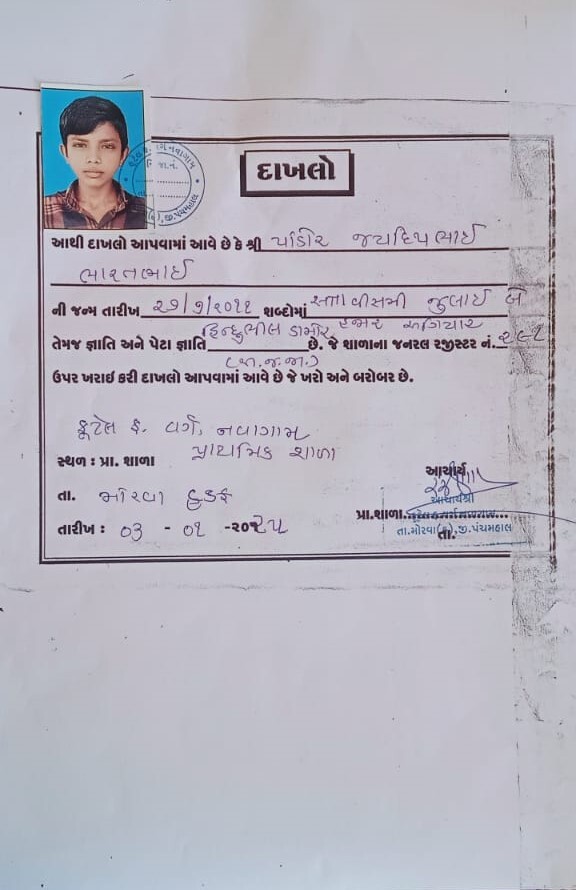 દાખલો
આથી દાખલો આપવામાં આવે છે કે શ્રી પાંડોર જયદિપભાઈ
ભારતભાઈ
ની જન્મ તારીખ ૨૭/૭/૨૦૧૧ શબ્દોમાં સત્તાવીસમી જુલાઈ બે
હજાર અગિયાર
તેમજ જ્ઞાતિ અને પેટા જ્ઞાતિ હિન્દુ ભીલ ડામોર છે. જે શાળાના જનરલ રજીસ્ટર નં. ૨૯૮
(અ.જ.જા.)
ઉપર ખરાઈ કરી દાખલો આપવામાં આવે છે જે ખરો અને બરોબર છે.
ફ. વર્ગ, નવાગામ
સ્થળ : પ્રા. શાળા પ્રાથમિક શાળા
તા. મોરવા હડફ
તારીખ : ૦૩ - ૦૧ -૨૦૨૫
આચાર્ય
આચાર્યશ્રી
પ્રા.શાળા
તા.મોરવા(હ),જી.પંચમહાલ
તા.